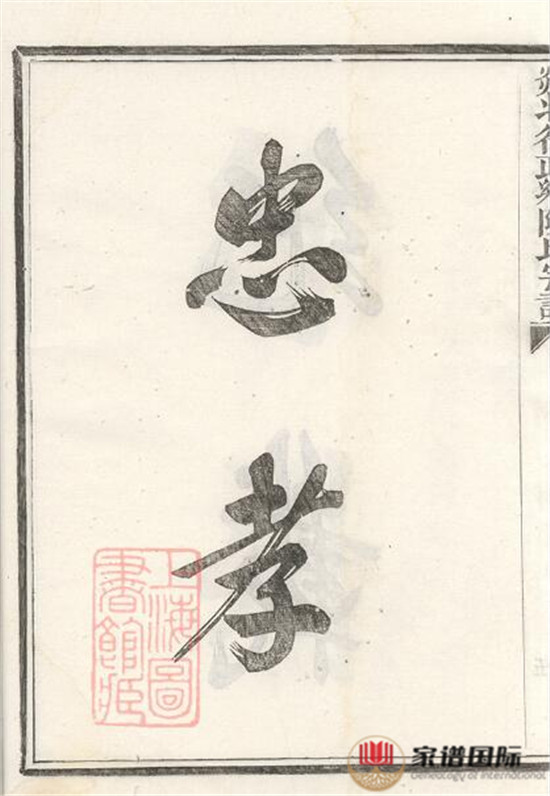 忠
孝
上海圖
書館藏
家谱国际
Genealogy of International